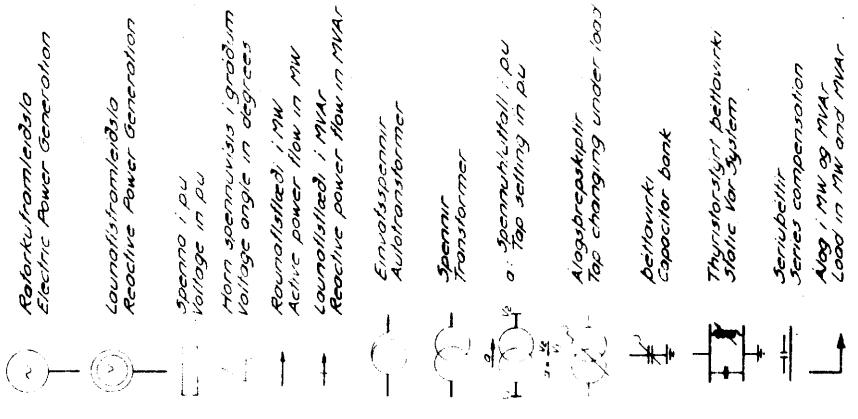 Raforkuframleiðsla
Electric Power Generation
Launaflsframleiðsla
Reactive Power Generation
Spenna i pu
Voltage in pu
Horn spennuvisis i gráðum
Voltage angle in degrees
Raunaflsflæði i MW
Active power flow in MW
Launaflsflæði i MVAr
Reactive power flow in MVAr
Einvafsspennir
Autotransformer
Spennir
Transformer
a: Spennuhlutfall i pu
Tap setting in pu
Álagsþrepskiptir
Tap changing under load
Þéttavirki
Capacitor bank
Thyristorstýrt þéttavirki
Static Var System
Seriuþéttir
Series compensation
Álag i MW og MVAr
Load in MW and MVAr